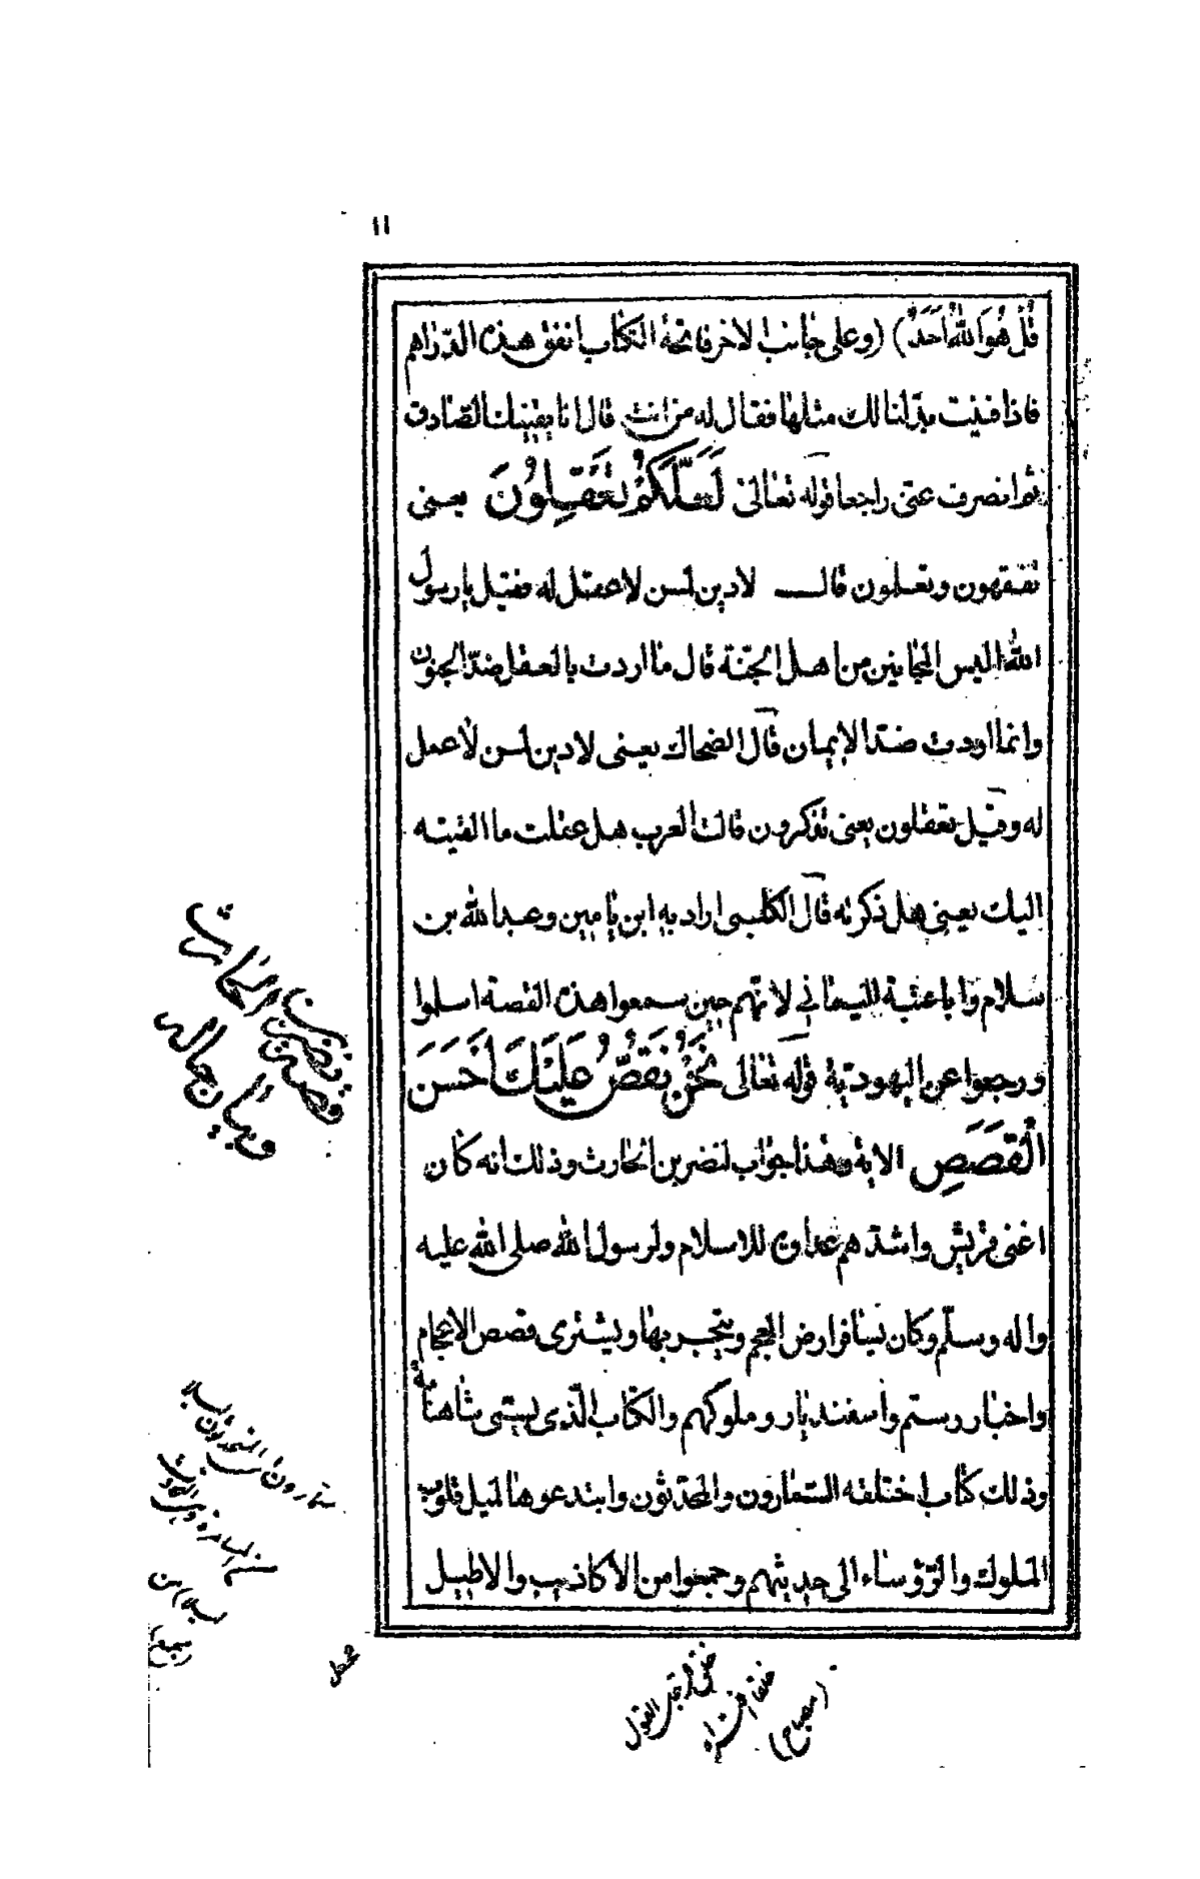 ١١
قُلْ هُوَ اللهُ اَحَدٌ) (وعلى جانب الاخر فاتحة الكتاب انفق هذه الدراهم
فاذا فنيت بدّلنا لك مثلها فقال له من انت قال انا يقينك الصّادق
ثم انصرف عنى راجعا قوله تعالى لَعَلَّكُمْ تَعْقِلُونَ يعنى
تفقهون وتعلمون قال لا دين لمن لا عقل له فقيل يا رسول
الله اليس المجانين من اهل الجنّة قال ما اردت بالعقل ضدّ الجنون
وانما اردت ضدّ الايمان قال الضحاك يعنى لا دين لمن لا عمل
له وقيل تعقلون يعنى تذكرون قالت العرب هل عقلت ما القيته
اليك يعنى هل ذكرته قال الكلبى اراد به ابن يامين وعبد الله بن
سلام وابا عتبة اليمانى لانهم حين سمعوا هذه القصة اسلموا
ورجعوا عن اليهوديّة قوله تعالى نَحْنُ نَقُصُّ عَلَيْكَ اَحْسَنَ
الْقَصَصِ الاية وهذا جواب لنضر بن الحارث وذلك انه كان
اغنى قريش واشدّهم عداوة للاسلام ولرسول الله صلى الله عليه
واله وسلّم وكان يسافر ارض العجم ويتجر بها ويشترى قصص الاعجام
واخبار رستم واسفنديار وملوكهم والكتاب الّذى يسمّى شاهنامة
وذلك كتاب اختلقه السّمّارون والمحدّثون وابتدعوها لميل قلوب
الملوك والرّؤساء الى حديثهم وجمعوا من الاكاذيب والاباطيل
قصة نضر بن الحارث
وبيان حاله